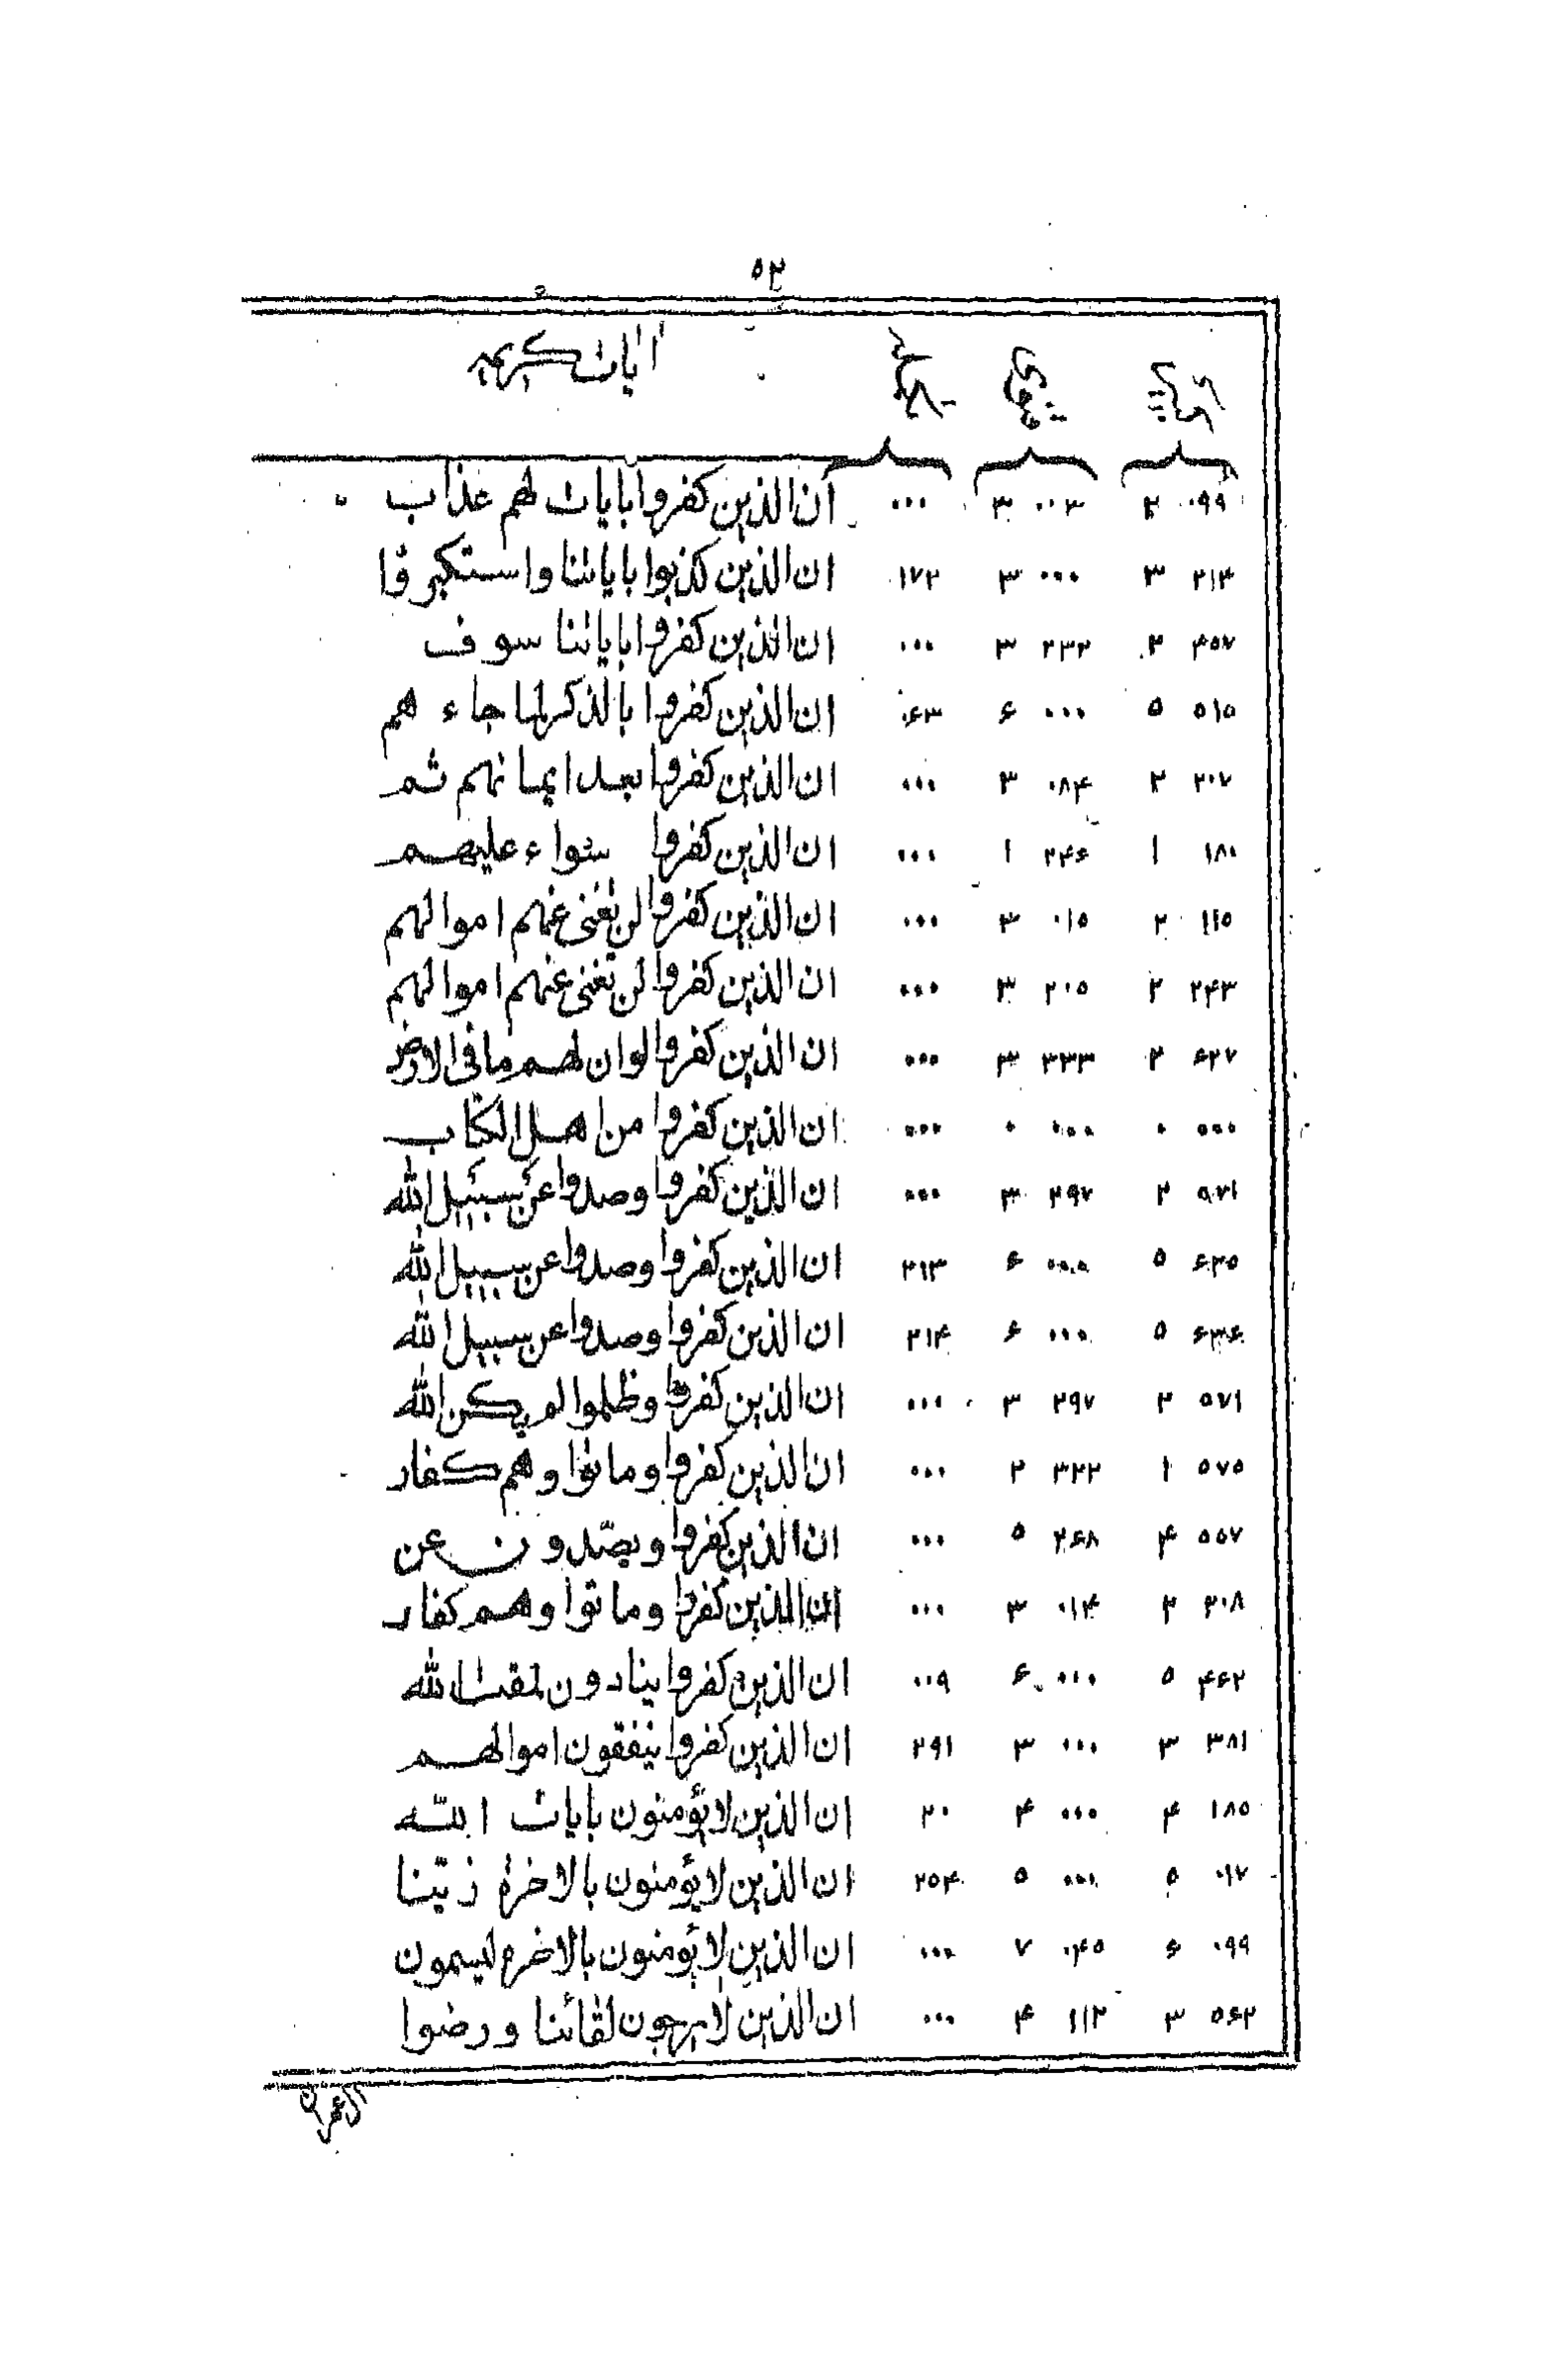 ۵۲
ایات کریمه
۰۹۹ ۲ ۰۰۳ ۳ ۰۰۰ ان الذین کفروا بایات لهم عذاب
۲۱۴ ۳ ۰۰۰ ۳ ۱۷۲ ان الذین کذبوا بایاتنا واستکبروا
۴۵۷ ۲ ۲۳۲ ۳ ۰۰۰ ان الذین کفروا بایاتنا سوف
۵۱۵ ۵ ۰۰۰ ۶ ۰۶۳ ان الذین کفروا بالذکر لما جاء هم
۲۰۷ ۲ ۰۸۴ ۳ ۰۰۰ ان الذین کفروا بعد ایمانهم ثم
۱۸۰ ۱ ۲۴۶ ۱ ۰۰۰ ان الذین کفروا سواء علیهم
۱۱۵ ۲ ۰۱۵ ۳ ۰۰۰ ان الذین کفروا لن تغنی عنهم اموالهم
۲۴۳ ۲ ۲۰۵ ۳ ۰۰۰ ان الذین کفروا لن تغنی عنهم اموالهم
۶۲۷ ۲ ۳۳۳ ۳ ۰۰۰ ان الذین کفروا لو ان لهم ما فی الارض
۰۰۰ ۰ ۰۰۰ ۰ ۰۰۰ ان الذین کفروا من اهل الکتاب
۵۷۱ ۲ ۲۹۷ ۳ ۰۰۰ ان الذین کفروا وصدوا عن سبیل الله
۶۳۵ ۵ ۰۰۰ ۶ ۲۱۳ ان الذین کفروا وصدوا عن سبیل الله
۶۳۶ ۵ ۰۰۰ ۶ ۲۱۴ ان الذین کفروا وصدوا عن سبیل الله
۵۷۱ ۲ ۲۹۷ ۳ ۰۰۰ ان الذین کفروا وظلموا لم یکن الله
۵۷۵ ۱ ۳۲۲ ۲ ۰۰۰ ان الذین کفروا وماتوا وهم کفار
۵۵۷ ۴ ۲۶۸ ۵ ۰۰۰ ان الذین کفروا ویصدون عن
۲۰۸ ۲ ۰۱۴ ۳ ۰۰۰ ان الذین کفروا وماتوا وهم کفار
۴۶۲ ۵ ۰۰۰ ۶ ۰۰۹ ان الذین کفروا ینادون لمقت الله
۳۸۱ ۳ ۰۰۰ ۳ ۲۹۱ ان الذین کفروا ینفقون اموالهم
۱۸۵ ۴ ۰۰۰ ۴ ۲۰ ان الذین لا یؤمنون بایات الله
۰۱۷ ۵ ۰۰۰ ۵ ۲۵۴ ان الذین لا یؤمنون بالاخرة زینا
۰۹۹ ۶ ۰۴۵ ۷ ۰۰۰ ان الذین لا یؤمنون بالاخره لیسمون
۵۶۲ ۳ ۱۱۲ ۴ ۰۰۰ ان الذین لا یرجون لقائنا ورضوا